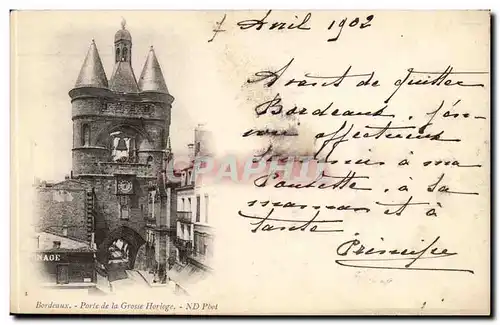 7 Avril 1902
Avant de quitter
Bordeaux, j'en-
voie affectueux
à ma
Paulette, à sa
maman et à
tante
NAGE
CPARAMA
1
Bordeaux. - Porte de la Grosse Horloge. - ND Phot